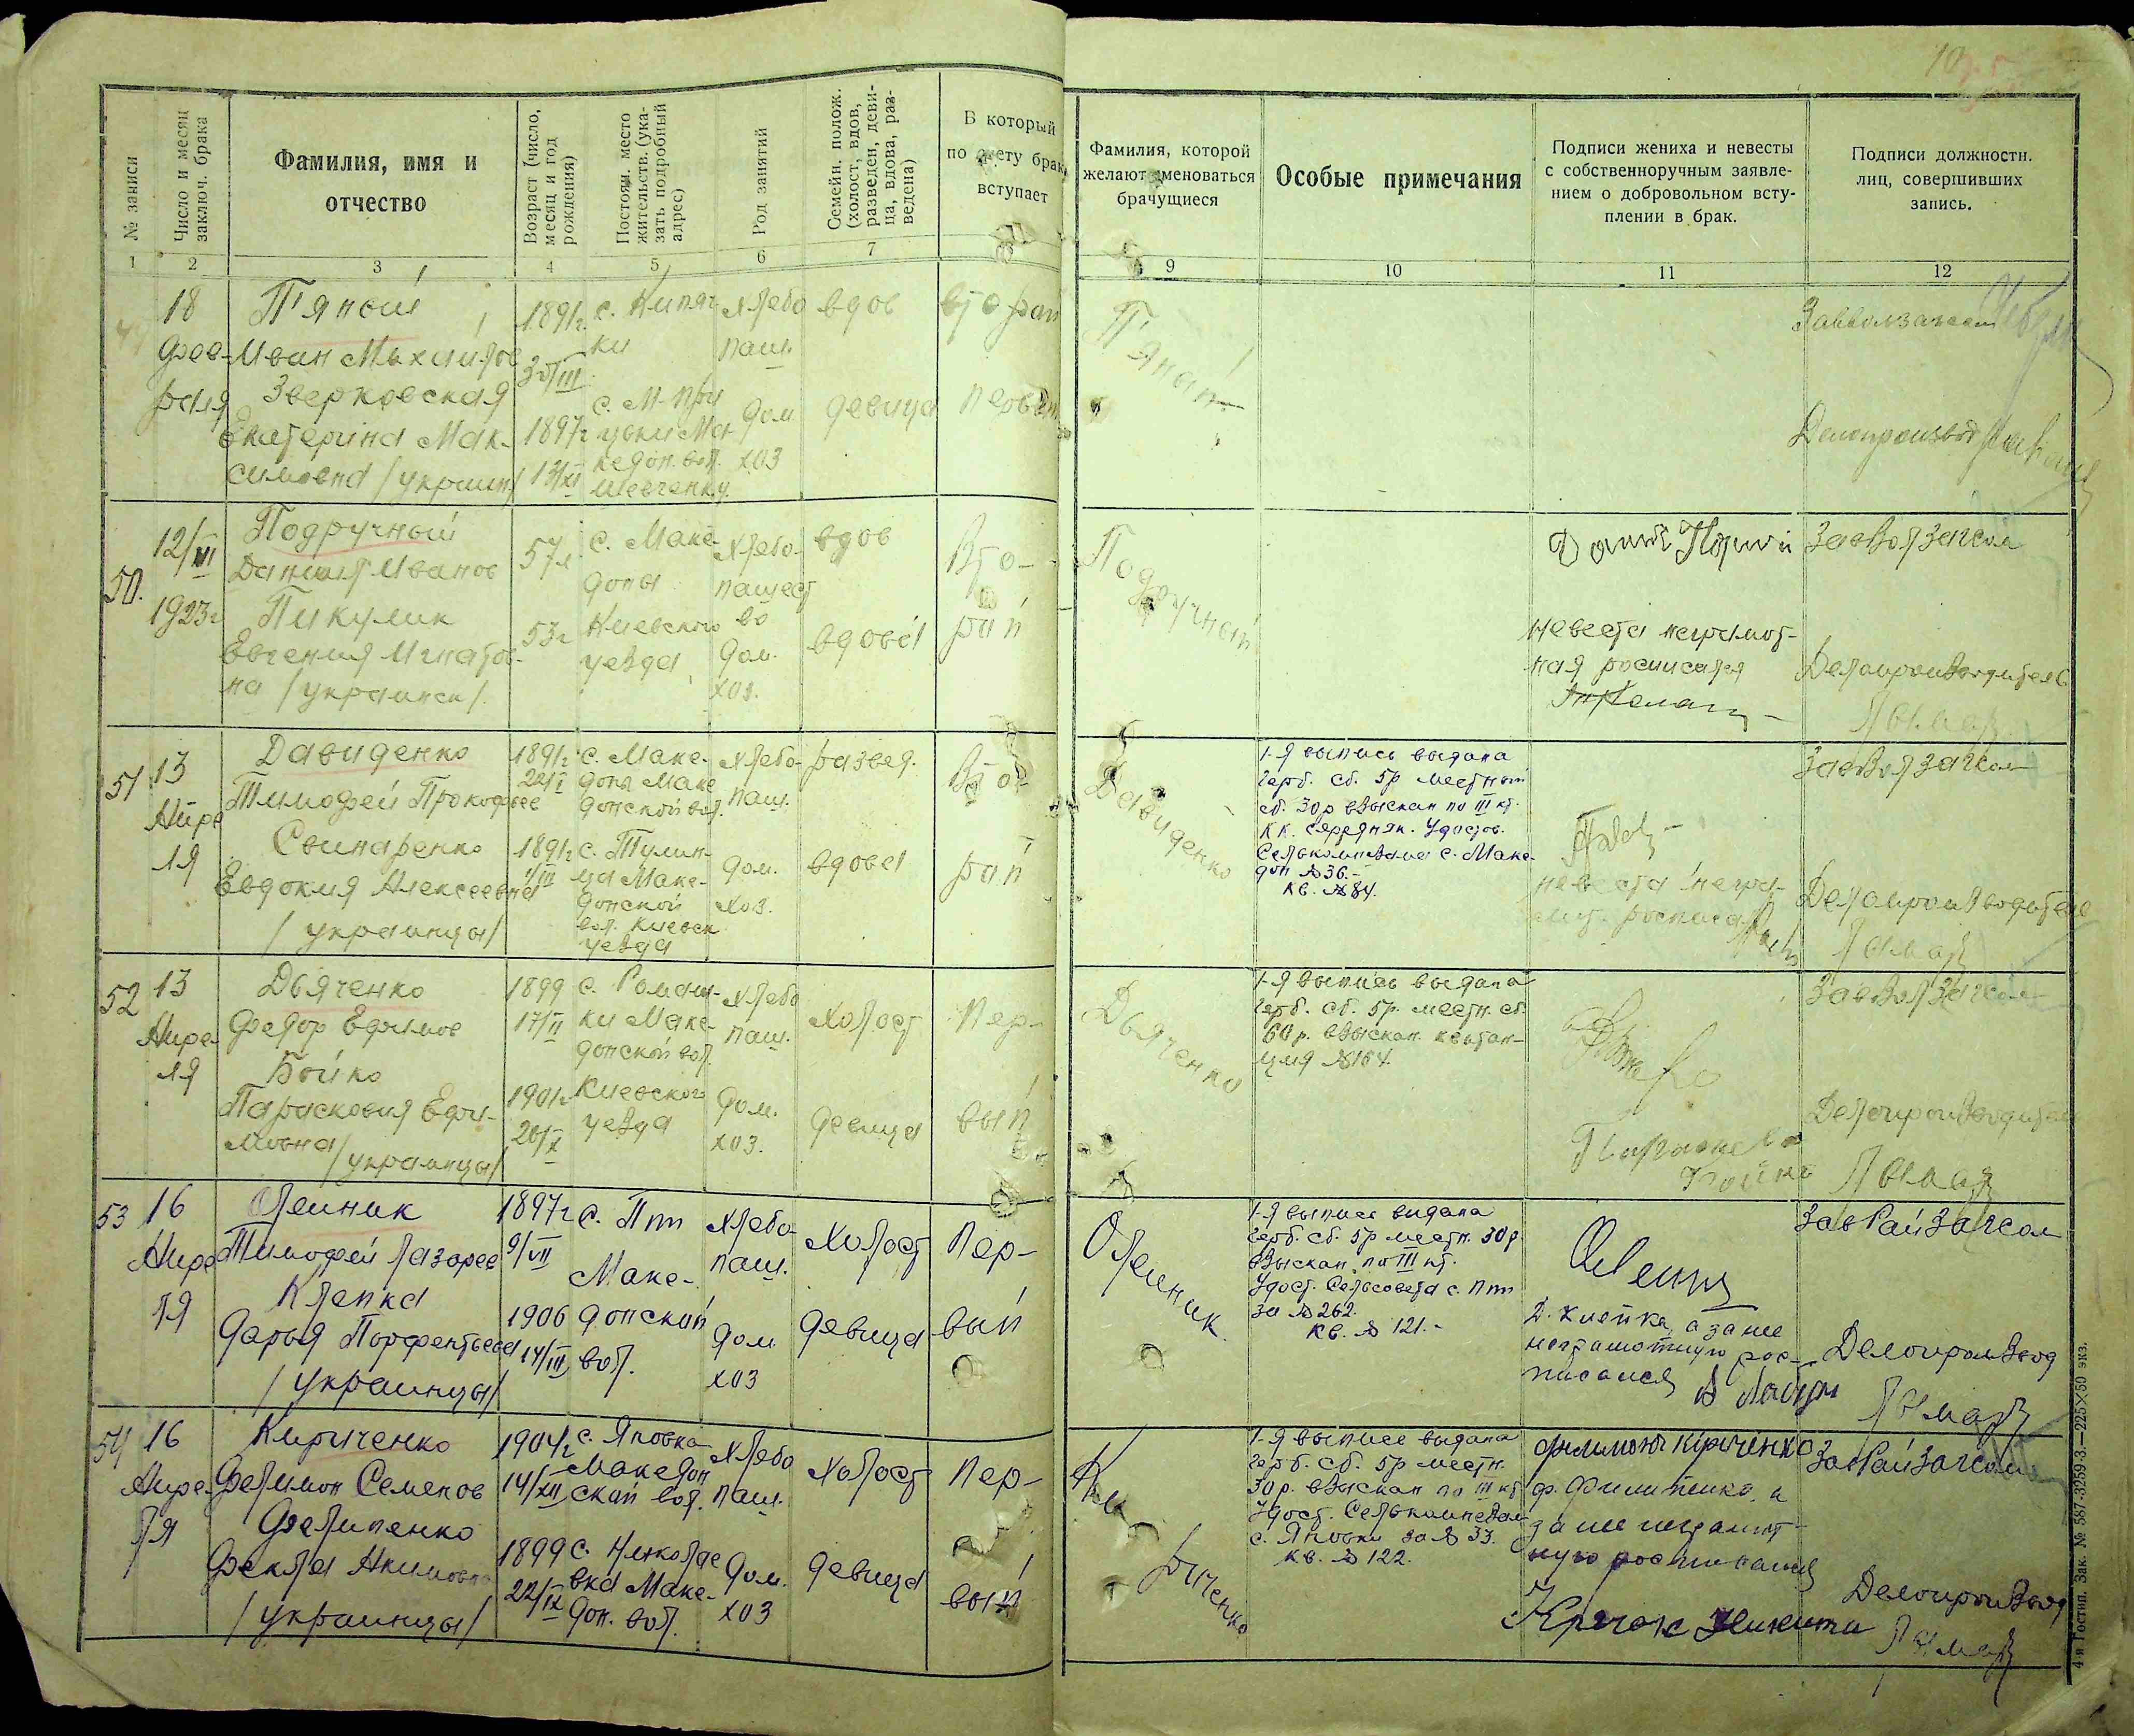 № записи
Число и месяц
заключ. брака
Фамилия, имя и
отчество
Возраст (число,
месяц и год
рождения)
Постоян. место
жительств. (ука-
зать подробный
адрес)
Род занятий
Семейн. полож.
(холост, вдов,
разведен, деви-
ца, вдова, раз-
ведена)
В который
по счету брак
вступает
Фамилия, которой
желают именоваться
брачущиеся
Особые примечания
Подписи жениха и невесты
с собственноручным заявле-
нием о добровольном всту-
плении в брак.
Подписи должностн.
лиц, совершивших
запись.
1 2 3 4 5 6 7 9 10 11 12
18
фев-
раля
П'яный
Иван Михайлов
Зверковская
Екатерина Мак-
симовна /украин/
1891г.
30/III
1897г
13/XI
с. Кипяч
ки
с. М-При
цьки Ма
кедон. вол.
Шевченк. у.
хлебо
паш.
дом
хоз
вдов
девица
второй
первый
П'яный
Завволзагсом
Делопроизвод
50.
12/VI
1923г
Подручный
Даниил Иванов
Пикулик
Евгения Игнатов-
на /украинси/
57л
53г
с. Маке-
доны
Киевского
уезда
хлебо-
пашест
во
дом.
хоз.
вдов
вдова
Вто-
рый
Подручный
невеста неграмот-
ная росписался
ЗавВолЗагсом
Делопроизводитель
Лымар
51
13
Апре
ля
Давиденко
Тимофей Прокофьев
Свинаренко
Евдокия Алексеевна
/украинцы/
1891г
22/I
1891г
1/III
с. Маке-
доны Маке
донской вол.
с. Тулин-
ца Маке-
донской
вол. Киевск
уезда
хлебо-
паш.
дом.
хоз.
развед.
вдова
Вто-
рый
Давиденко
1-я выпись выдана
герб. сб. 5р местный
сб. 30р взыскан по III кт.
КК. середняк. Удостов.
Селькомнезама с. Маке-
дон № 36.-
кв. № 84.
невеста негра-
мот. росписался
ЗавВолЗагсом
Делопроизводитель
Лымар
52
13
Апре
ля
Дьяченко
Федор Ефимов
Бойко
Парасковия Ефи-
мовна /украинцы/
1899
17/II
1901г
20/X
с. Ромаш-
ки Маке-
донской вол.
Киевского
уезда
хлебо
паш.
дом.
хоз.
Холост
девица
Пер-
вый
Дьяченко
1-я выпись выдана
герб. сб. 5р. местн. сб.
60р. взыскан. квитан-
ция № 164.
Парасковея
Бойко
ЗавВолЗагсом
Делопроизводитель
Лымар
53
16
Апре
ля
Олейник
Тимофей Лазарев
Клепка
Дарья Порфентьева
/украинцы/
1897г
9/VII
1906
14/III
с. Пии
Маке-
донской
вол.
хлебо-
паш.
дом
хоз
Холост
девица
Пер-
вый
Олейник.
1-я выпись видана
герб. сб. 5р местн. 30р.
взыскан по III кт.
Удост. Сельсовета с. Пии
за № 262.
кв. № 121.-
Д. Клепка, а за ние
неграмотную рос-
писался
ЗавРайЗагсом
Делопроизвод
Лымар
54
16
Апре
ля
Кириченко
Филимон Семенов
Филипенко
Фекла Акимовна
/украинцы/
1904г
14/XII
1899
22/IX
с. Яновка
Македон
ской вол.
с. Николае
вка Маке-
дон. вол.
хлебо
паш.
дом.
хоз
холост
девица
Пер-
вый
Кириченко
1-я выпись выдана
герб. сб. 5р местн.
30р. взыскан по III кт
Удост. Селькомнезам
с. Яновки за № 33.
кв. № 122.
Филимонъ Кіриченко
ф. Филипенко, а
за ние неграмот-
ную росписался
Никита
ЗавРайЗагсом
Делопроизвод
Лымар
4-я Гостип. Зак. № 587-3259-3.—225×50 экз.